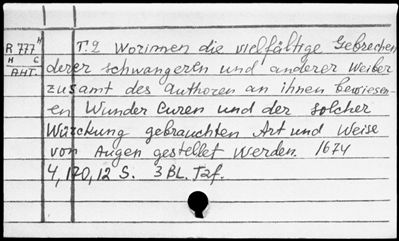 R 777 H
H C
AHT.
T. 2 Worinnen die vielfältige Gebrechen
derer schwangeren und anderer Weiber
zusamt des Authoren an ihnen bewiesen-
en Wunder Curen und der solcher
Würckung gebrauchten Art und Weise
von Augen gestellet werden. 1674
4, 170, 12 S. 3 BL. Taf.